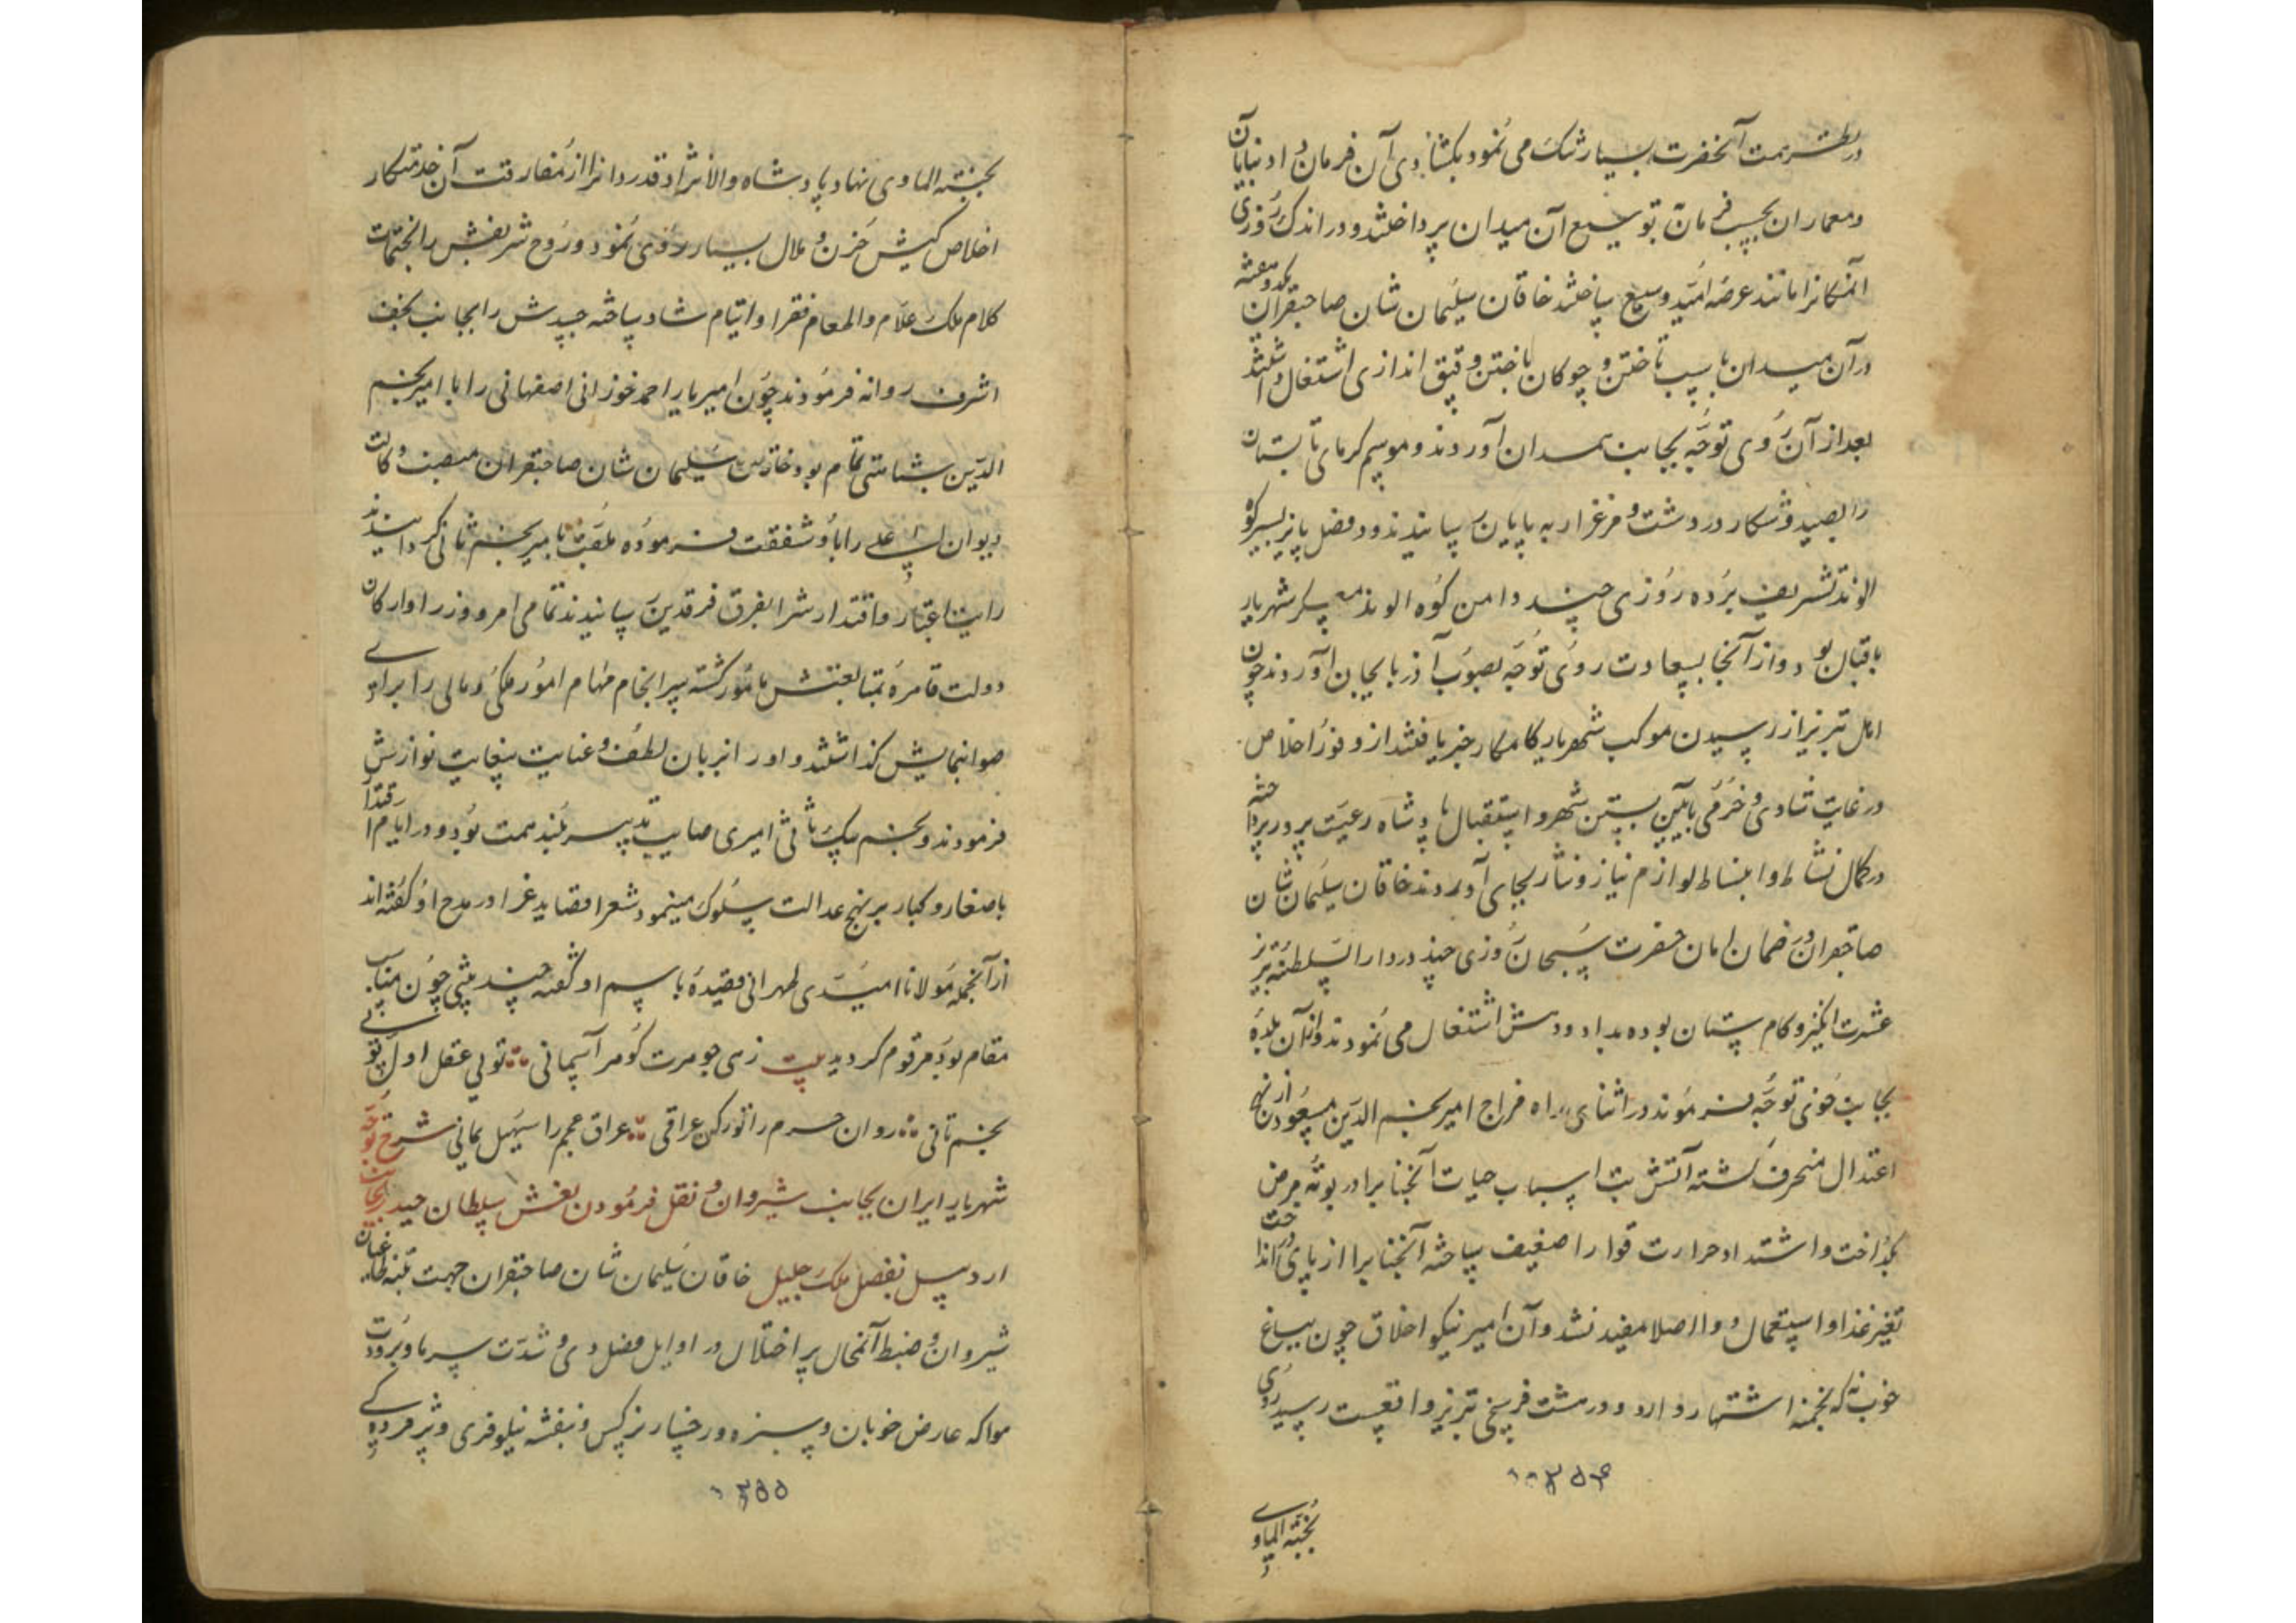 در نظر همت آنحضرت بسیار تنگ می نمود بگشادی آن فرمان داد بنایان
و معماران بحسب فرمان بتوسیع آن میدان پرداختند و در اندک روزی
آنمکانرا مانند عرصه امید وسیع ساختند خاقان سلیمان شان صاحبقران یکدو هفته
در آن میدان باسب تاختن و چوکان باختن و قپق اندازی اشتغال داشتند
بعد از آن روی توجه بجانب همدان آوردند و موسم کرمای تابستان
را بصید و شکار در دشت و مرغزار به پایان رسانیدند و در فصل پاییز بسیر کوه
الوند تشریف برده روزی چند دامن کوه الوند معسکر شهریار
باقبال بود و از آنجا بسعادت روی توجه بصوب آذربایجان آوردند چون
اهل تبریز از رسیدن موکب شهریار کامکار خبر یافتند از وفور اخلاص
در غایت شادی و خرمی بآیین بستن شهر و استقبال پادشاه رعیت پرور پرداخته
در کمال نشاط و انبساط لوازم نیاز و نثار بجای آوردند خاقان سلیمان شان
صاحبقران در ضمان امان حضرت سبحان روزی چند در دار السلطنه تبریز
عشرت انگیز و کام ستان بوده بداد و دهش اشتغال می نمودند و از آن بلده
بجانب خوی توجه فرموند در اثنای راه مزاج امیر نجم الدین مسعود از نهج
اعتدال منحرف گشته آتش تب اسباب حیات آنجنابرا در بوته مرض
بگداخت و اشتداد حرارت قوا را ضعیف ساخته آنجنابرا از پای در انداخت
تغییر غذا و استعمال دوا اصلا مفید نشد و آن امیر نیکو اخلاق چون بباغ
خوب که بخمنه اشتهار دارد و در هشت فرسخی تبریز واقعست رسید روی
۱۰۳۵۴
بجنته الماوی
بجنته الماوی نهاد پادشاه والانژاد قدردانرا از مفارقت آن خدمتکار
اخلاص کیش حزن و ملال بسیار روی نمود و روح شریفش را بختمات
کلام ملک علام و اطعام فقرا و ایتام شاد ساخته جسدش را بجانب نجف
اشرف روانه فرمودند چون امیر یار احمد خوزانی اصفهانی را با امیر نجم
الدین شباهتی تمام بود خاقان سلیمان شان صاحبقران منصب وکالت
دیوان اعلی را باو شفقت فرموده ملقب بامیر نجم ثانی کردانیدند
رایت اعتبار و اقتدارش را بفرق فرقدین رسانیدند تمامی امرو وزرا و ارکان
دولت قاهره بمتابعتش مامور گشته سرانجام مهام امور ملکی و مالی را برای
صوابنمایش گذاشتند و او را از بان لطف و عنایت بغایت نوازش
فرمودند و نجم بیک ثانی امیری صایب تدبیر بلند همت بود و در ایام اقتدار
با صغار و کبار بر نهج عدالت سلوک مینمود شعرا قصاید غرا در مدح او گفته اند
از آنجمله مولانا امیدی طهرانی قصیده باسم او گفته چند بیتی چون مناسب
مقام بود مرقوم کردید بیت زهی جوهرت گوهر آسمانی ؞ تویی عقل اول تویی
نجم ثانی ؞ روان حرم را تو رکن عراقی ؞ عراق عجم را سهیل یمانی شرح توجه
شهریار ایران بجانب شیروان و نقل فرمودن نعش سلطان حیدر بجانب
اردبیل بفضل ملک جلیل خاقان سلیمان شان صاحبقران جهت تنبیه طاغیان
شیروان و ضبط آنمحال پر اختلال در اوایل فصل دی و شدت سرما و برودت
هوا که عارض خوبان و سبزه و رخسار نرگس و بنفشه نیلوفری و پژمرده
۱۰۳۵۵